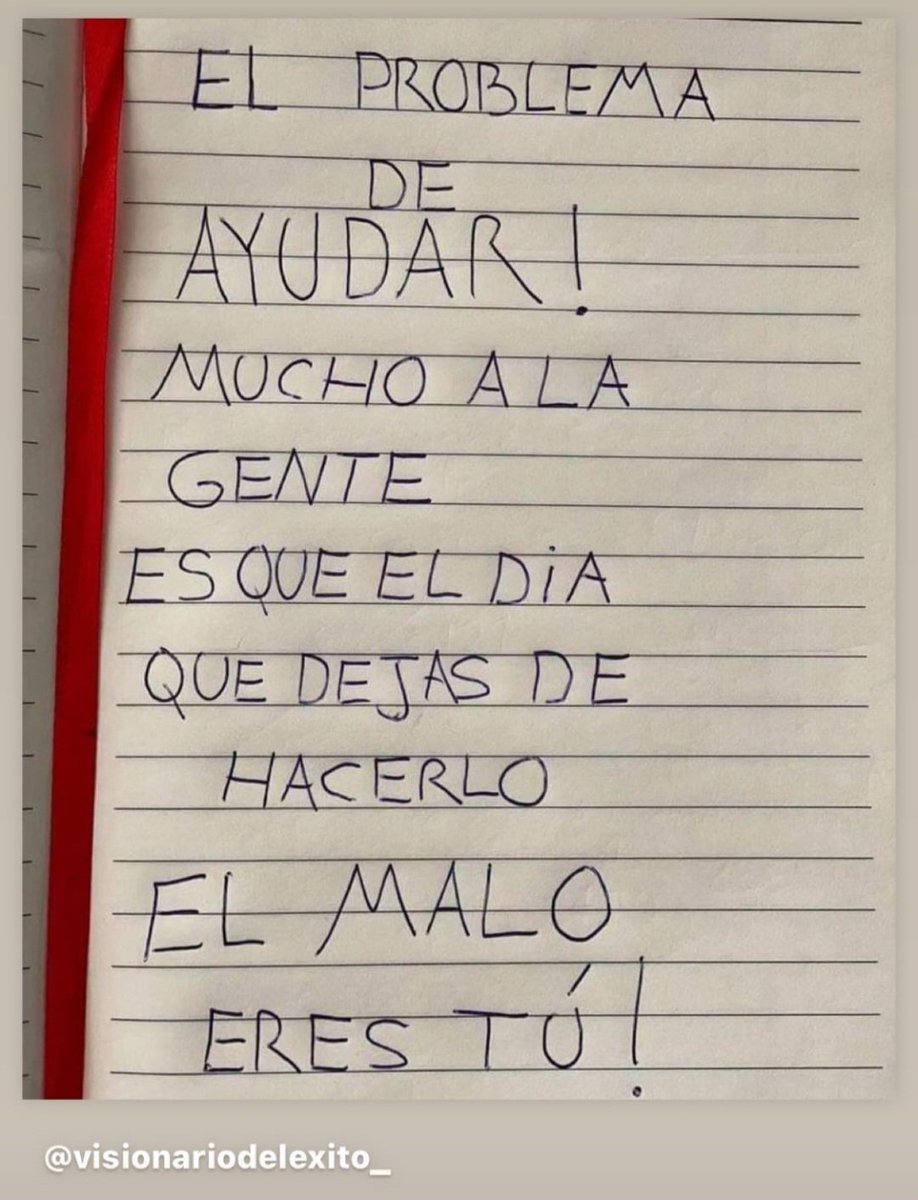 EL PROBLEMA
DE
AYUDAR!
MUCHO A LA
GENTE
ES QUE EL DiA
QUE DEJAS DE
HACERLO
EL MALO
ERES TÚ!
@visionariodelexito_